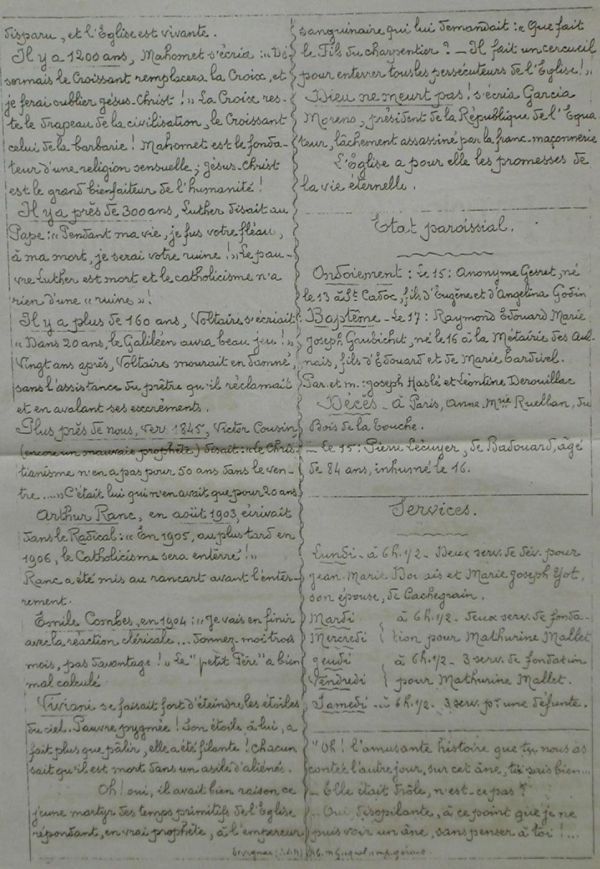 disparu, et l'Église est vivante.
Il y a 1200 ans, Mahomet s'écria : « Dé-
sormais le Croissant remplacera la Croix, et
je ferai oublier Jésus-Christ ! » La Croix res-
te le drapeau de la civilisation, le Croissant
celui de la barbarie ! Mahomet est le fonda-
teur d'une religion sensuelle ; Jésus-Christ
est le grand bienfaiteur de l'humanité !
Il y a près de 300 ans, Luther disait au
Pape : « Pendant ma vie, je fus votre fléau,
à ma mort, je serai votre ruine ! » Le pau-
vre Luther est mort et le catholicisme n'a
rien d'une « ruine » !
Il y a plus de 160 ans, Voltaire s'écriait
« Dans 20 ans, le Galiléen aura beau jeu ! »
Vingt ans après, Voltaire mourait en damné,
sans l'assistance du prêtre qu'il réclamait
et en avalant ses excréments.
Plus près de nous, ver. 1845, Victor Cousin,
(encore un mauvais prophète) disait : « le Chris-
tianisme n'en a pas pour 50 ans dans le ven-
tre .... » C'était lui qui n'en avait que pour 20 ans
Arthur Ranc, en août 1903, écrivait
dans le Radical : « En 1905, au plus tard en
1906, le Catholicisme sera enterré ! »
Ranc a été mis au rancart avant l'enter-
rement.
Emile Combes, en 1904 : « Je vais en finir
avec la réaction cléricale... donnez moi trois
mois, pas davantage ! » Le "petit Père" a bien
mal calculé
Viviani se faisait fort d'éteindre les étoiles
du ciel. Pauvre pygmée ! Son étoile à lui, a
fait plus que pâlir, elle a été filante ! Chacun
sait qu'il est mort dans un asile d'aliénés.
Oh ! oui, il avait bien raison ce
jeune martyr des temps primitifs de l'Église
répondant, en vrai prophète, à l'empereur
sanguinaire qui lui demandait : « Que fait
le Fils du charpentier ? – Il fait un cercueil
pour enterrer tous les persécuteurs de l'Église ! »
Dieu ne meurt pas ! s'écria Garcia
Moreno, président de la République de l'Equa
teur, lâchement assassiné par la franc-maçonnerie
L'Église a pour elle les promesses de
la vie éternelle.
Etat paroissial.
Ondoiement : Le 15 : Anonyme Gesret, né
le 13 à St Cadoc, fils d'Eugène et d'Angelina Godin
Baptême - Le 17 : Raymond Edouard Marie
Joseph Gaubichet, né le 16 à la Métairie des Aul-
nais, fils d'Edouard et de Marie Tardivel.
Par. et m : Joseph Haslé et Léontine Derouillac
Décès - à Paris, Anne Mie Ruellan, du
Bois de la Touche.
- Le 15 : Pierre Lécuyer, de Badouard, âgé
de 84 ans, inhumé le 16.
Services.
Lundi - à 6h.1/2 - Deux serv. de dév. pour
Jean Marie et Marie Joseph Yot,
son épouse, de Cachegrain.
Mardi à 6h.1/2 - deux serv. de fonda-
Mercredi tion pour Mathurine Mallet
Jeudi à 6h.1/2 - 3 serv. de fondation
Vendredi pour Mathurine Mallet.
Samedi - à 6h.1/2 - 3 serv. pr une défunte.
"Oh ! l'amusante histoire que tu nous as
contée l'autre jour, sur cet âne, tu sais bien...
- Elle était drôle, n'est-ce pas ?
- Oui, désopilante, à ce point que je ne
puis voir un âne, sans penser à toi ! ...